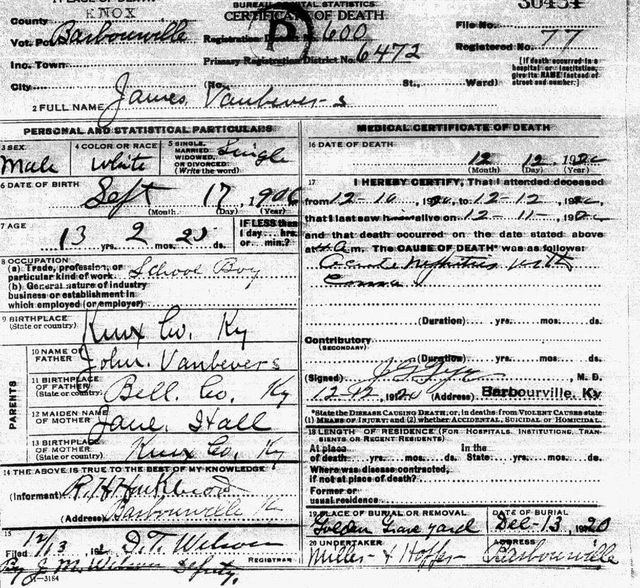 1 PLACE OF DEATH
BUREAU OF VITAL STATISTICS
CERTIFICATE OF DEATH
County KNOX
File No. 30434
Vot. Pct Barbourville
Registration District No. 600
Registered No. 77
Inc. Town
Primary Registration District No. 6472
[If death occurred in a hospital or institution, give its NAME instead of street and number.]
City (No. St., Ward)
2 FULL NAME James Vanbevers
PERSONAL AND STATISTICAL PARTICULARS
3 SEX Male
4 COLOR OR RACE White
5 SINGLE, MARRIED, WIDOWED, OR DIVORCED (Write the word) Single
6 DATE OF BIRTH Sept 17, 1906
(Month) (Day) (Year)
7 AGE 13 yrs. 2 mos. 25 ds.
IF LESS than 1 day... hrs. or... min.?
8 OCCUPATION
(a) Trade, profession, or particular kind of work School Boy
(b) General nature of industry
business or establishment in
which employed (or employer)
9 BIRTHPLACE (State or country) Knox Co. Ky
PARENTS
10 NAME OF FATHER John Vanbevers
11 BIRTHPLACE OF FATHER (State or country) Bell. Co. Ky
12 MAIDEN NAME OF MOTHER Jane Hall
13 BIRTHPLACE OF MOTHER (State or country) Knox Co. Ky
14 THE ABOVE IS TRUE TO THE BEST OF MY KNOWLEDGE
(Informant)
(Address) Barbourville Ky
15
Filed 12/13, 192 D.T. Wilson
REGISTRAR
By J. M. Wilson Deputy.
V1-3184
MEDICAL CERTIFICATE OF DEATH
16 DATE OF DEATH
12 12, 1920
(Month) (Day) (Year)
17 I HEREBY CERTIFY, That I attended deceased
from 12-10, 1920, to 12-12, 1920
that I last saw h alive on 12-11-, 1920
and that death occurred on the date stated above
at A m. The CAUSE OF DEATH* was as follows:
Acute Nephritis with
Coma
(Duration) yrs. mos. ds.
Contributory
(SECONDARY)
(Duration) yrs. mos. ds.
(Signed) M. D.
12-12, 1920 (Address) Barbourville, Ky
*State the DISEASE CAUSING DEATH; or, in deaths from VIOLENT CAUSES state
(1) MEANS OF INJURY; and (2) whether ACCIDENTAL, SUICIDAL or HOMICIDAL.
18 LENGTH OF RESIDENCE (FOR HOSPITALS, INSTITUTIONS, TRANSIENTS OR RECENT RESIDENTS)
At place of death yrs. mos. ds. In the State yrs. mos. ds.
Where was disease contracted,
if not at place of death?
Former or
usual residence
19 PLACE OF BURIAL OR REMOVAL
DATE OF BURIAL
Golden Grave yard Dec-13, 1920
20 UNDERTAKER
ADDRESS
Miller & Hopper Barbourville